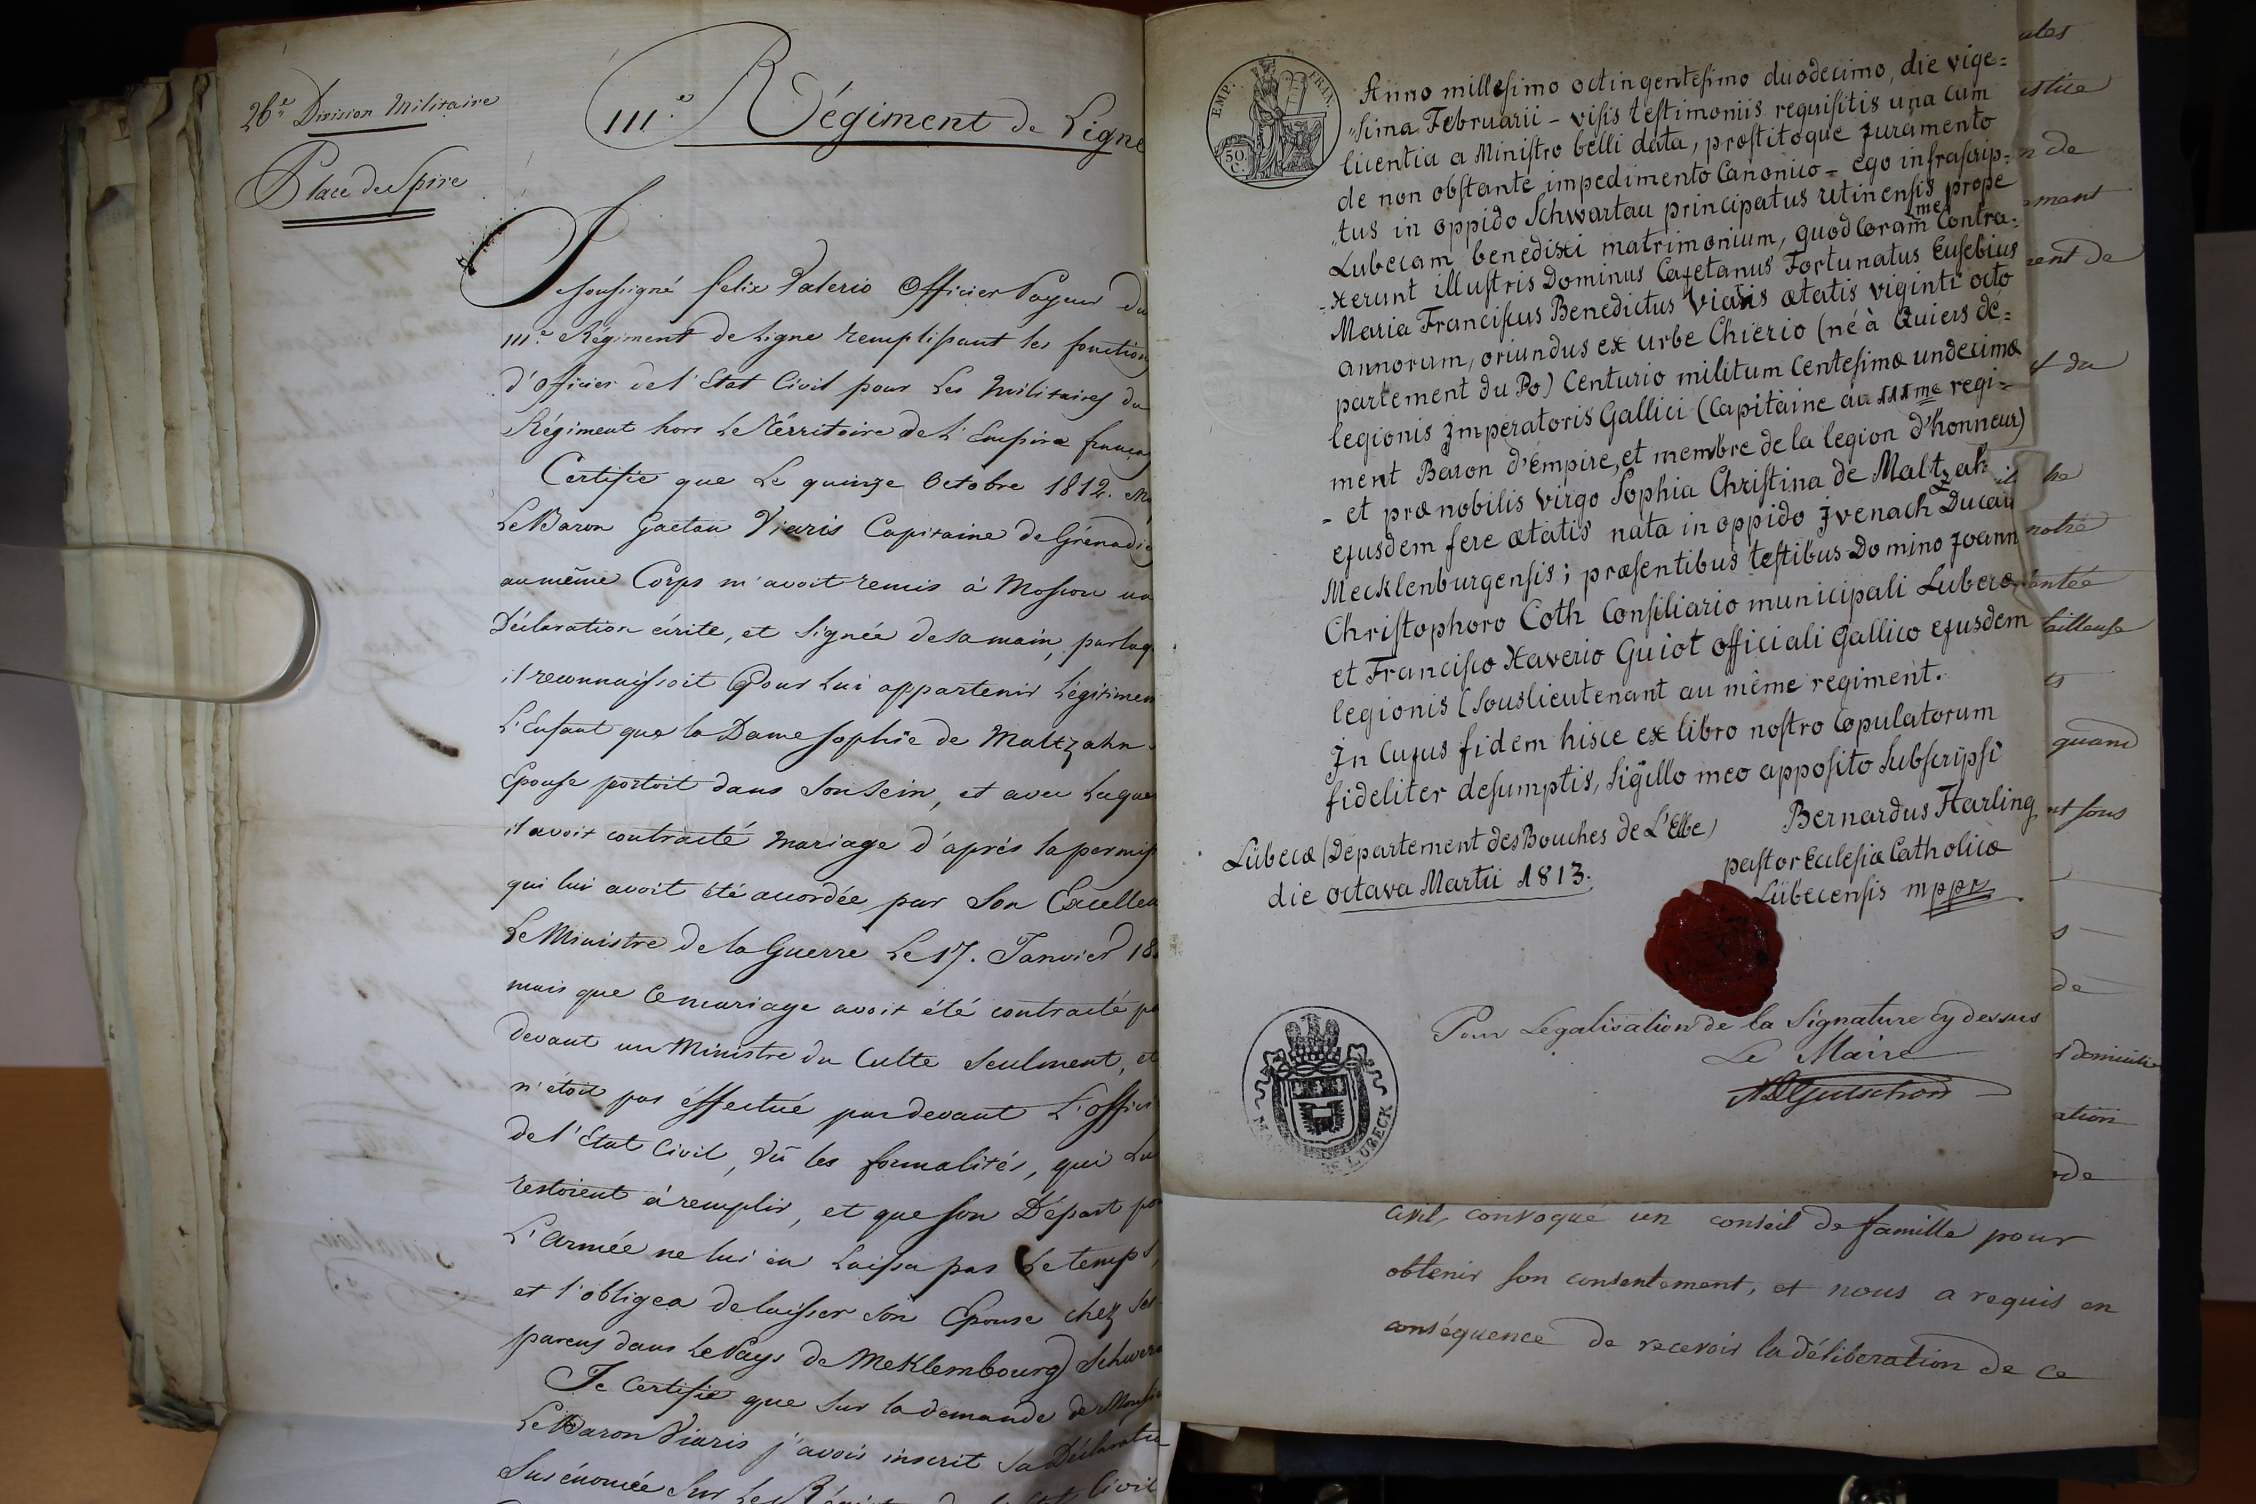 26.e Division Militaire
Place de Spire
111.e Régiment de Ligne
Je soussigné Felix Valerio Officier Payeur du
111.e Régiment de Ligne remplissant les fonction
d'Officier de l'Etat Civil pour Les Militaires du
Régiment hors Le Térritoire de L'Empire françai
Certifie que Le quinze Octobre 1812. Mr
Le Baron Gaetan Viaris Capitaine de Grénadie
au même Corps m'avoit remis à Moscou un
Déclaration écrite, et signée de sa main, par laq
il reconnaissoit Pour Lui appartenir Légitimem
L'Enfant que la Dame Sophie de Maltzahn
Epouse portoit dans son sein, et avec Laque
il avoit contracté mariage d'après la permiss
qui lui avoit été accordée par Son Excellen
Le Ministre de la Guerre Le 17. Janvier 18
mais que Ce mariage avoit été contracté pa
devant un Ministre du Culte Seulment, et
n'étoit pas éffectué pardevant L'Offici
de l'Etat Civil, Vû les formalités, qui Lui
restoient à remplir, et que son Départ pou
L'Armée ne lui en Laissa pas Le temps,
et l'obligea de laisser son Epouse chez ses
parens dans Le Pays de Meklembourg Schwerin
Je Certifie que sur la demande de Monsie
Le Baron Viaris j'avois inscrit sa Déclaratio
Susénoncée Sur Les Civil
EMP. FRAN.
50 C.
Anno millesimo octingentesimo duodecimo, die vige=
"sima Februarii - visis testimoniis requisitis una cum
licentia a Ministro belli data, prœstitoque Juramento
de non obstante impedimento Canonico = ego infrascrip=
"tus in oppido Schwartau principatus utinensis prope
Lubecam benedixi matrimonium, quod coram me Contra=
-xerunt illustris Dominus Cajetanus Fortunatus Eusebius
Maria Franciscus Benedictus Viaris œtatis viginti octo
annorum, oriundus ex urbe Chierio (né à Quiers dé=
partement du Po) Centurio militum Centesimœ undecimœ
legionis Imperatoris Gallici (Capitaine au 111me regi=
ment Baron d'Empire, et membre de la legion d'honneur)
- et prœnobilis virgo Sophia Christina de Maltzah
ejusdem fere œtatis nata in oppido Jvenach Ducau
Mecklenburgensis; prœsentibus testibus Domino Joann
Christophoro Coth Consiliario municipali Lubecœ
et Francisco Xaverio Guiot officiali Gallico ejusdem
legionis (souslieutenant au même regiment.
Jn Cujus fidem hisce ex libro nostro Copulatorum
fideliter desumptis, Sigillo meo apposito Subscripsi
Bernardus Harling
pastor Ecclesiœ Catholicœ
Lübecensis mppr
Lübecœ (Département des Bouches de L'Elbe)
die octava Martii 1813.
Pour Légalisation de la Signature cy dessus
Le Maire
LUBECK
civil, convoqué un conseil de famille pour
obtenir son consentement, et nous a requis en
conséquence de recevoir la déliberation de ce